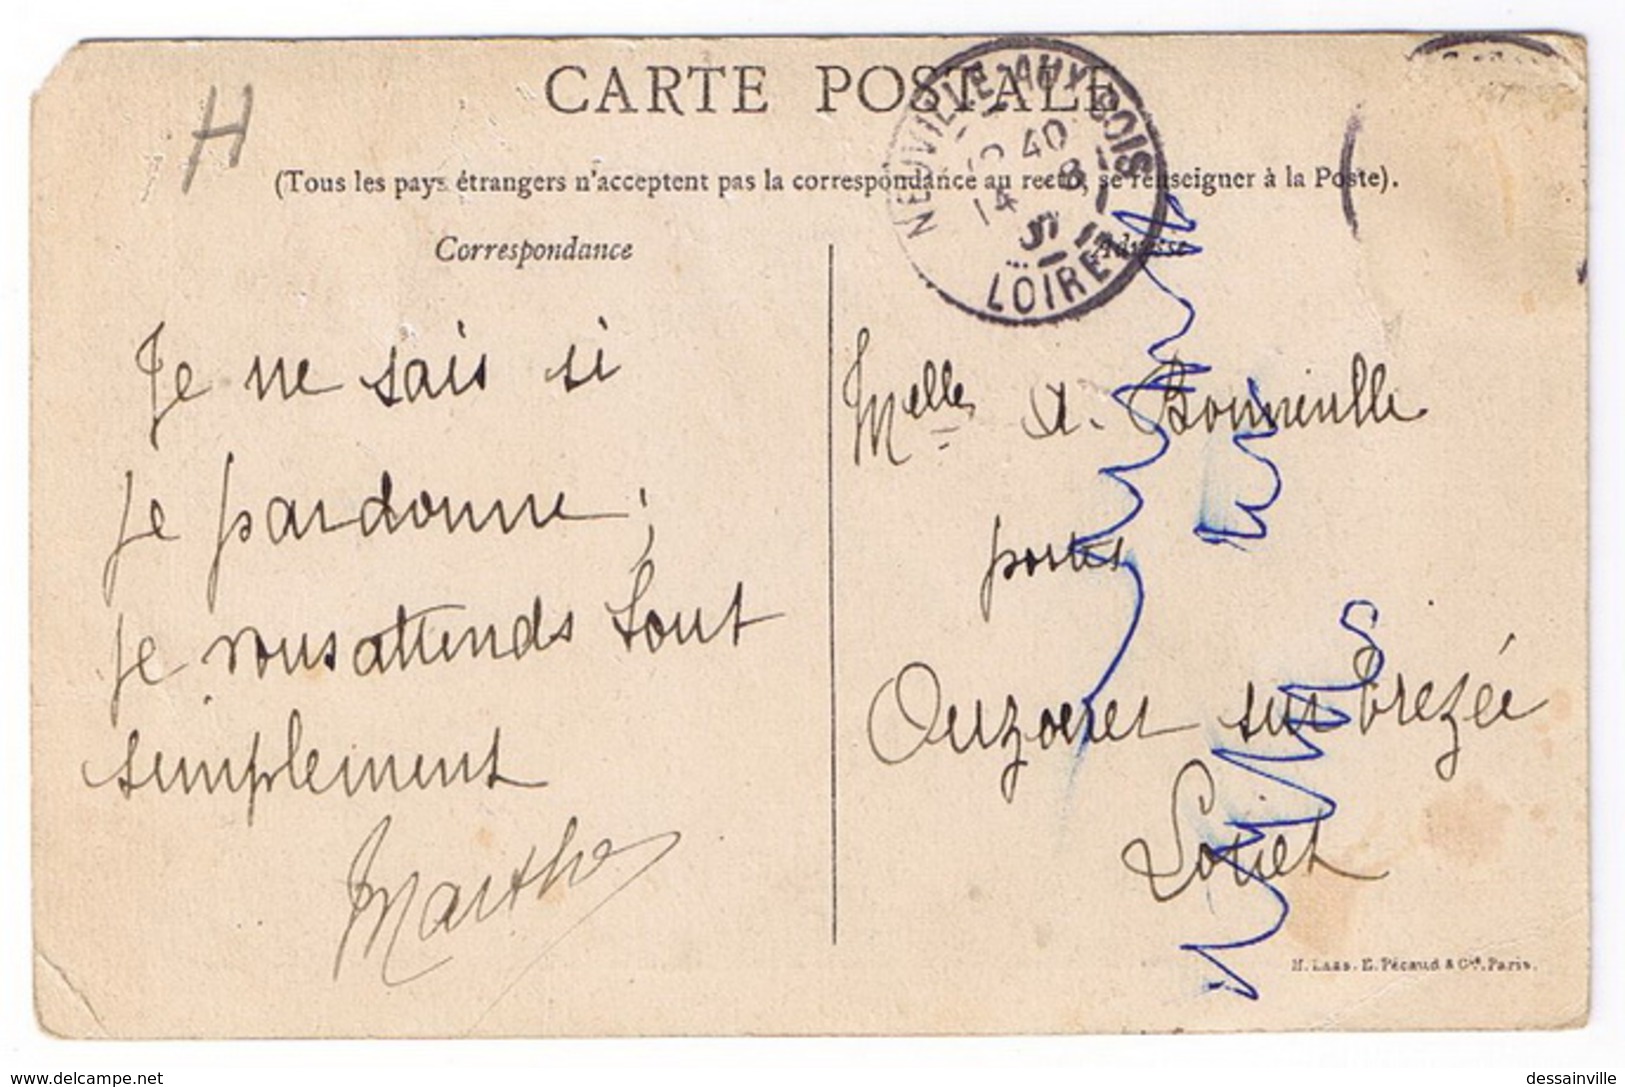 CARTE POSTALE
H
(Tous les pays étrangers n'acceptent pas la correspondance au recto, se renseigner à la Poste).
NEUVILLE-AUX-BOIS
40
14 - 8
LOIRET
Correspondance
Adresse
Je ne sais si
je pardonne ;
je vous attends tout
simplement
Marthe
Melles A. Bonneville
postes
Ouzouer sur trezée
Loiret
H. Laas. E. Pécaud & Cie. Paris.
www.delcampe.net
dessainville